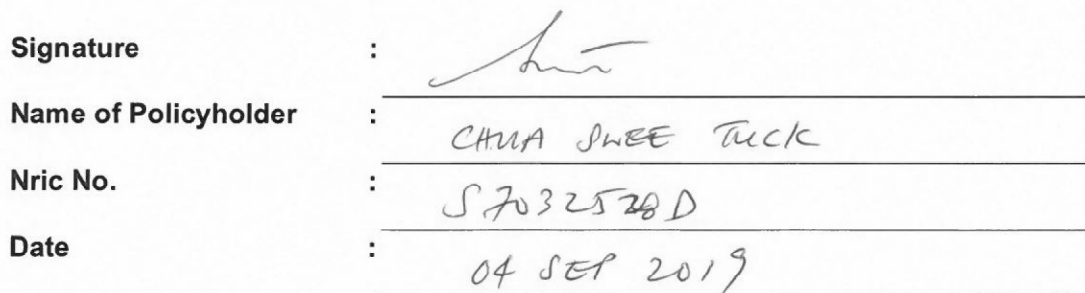 Signature :
Name of Policyholder : CHUA SWEE TUCK
Nric No. :
Date : 04 SEP 2019